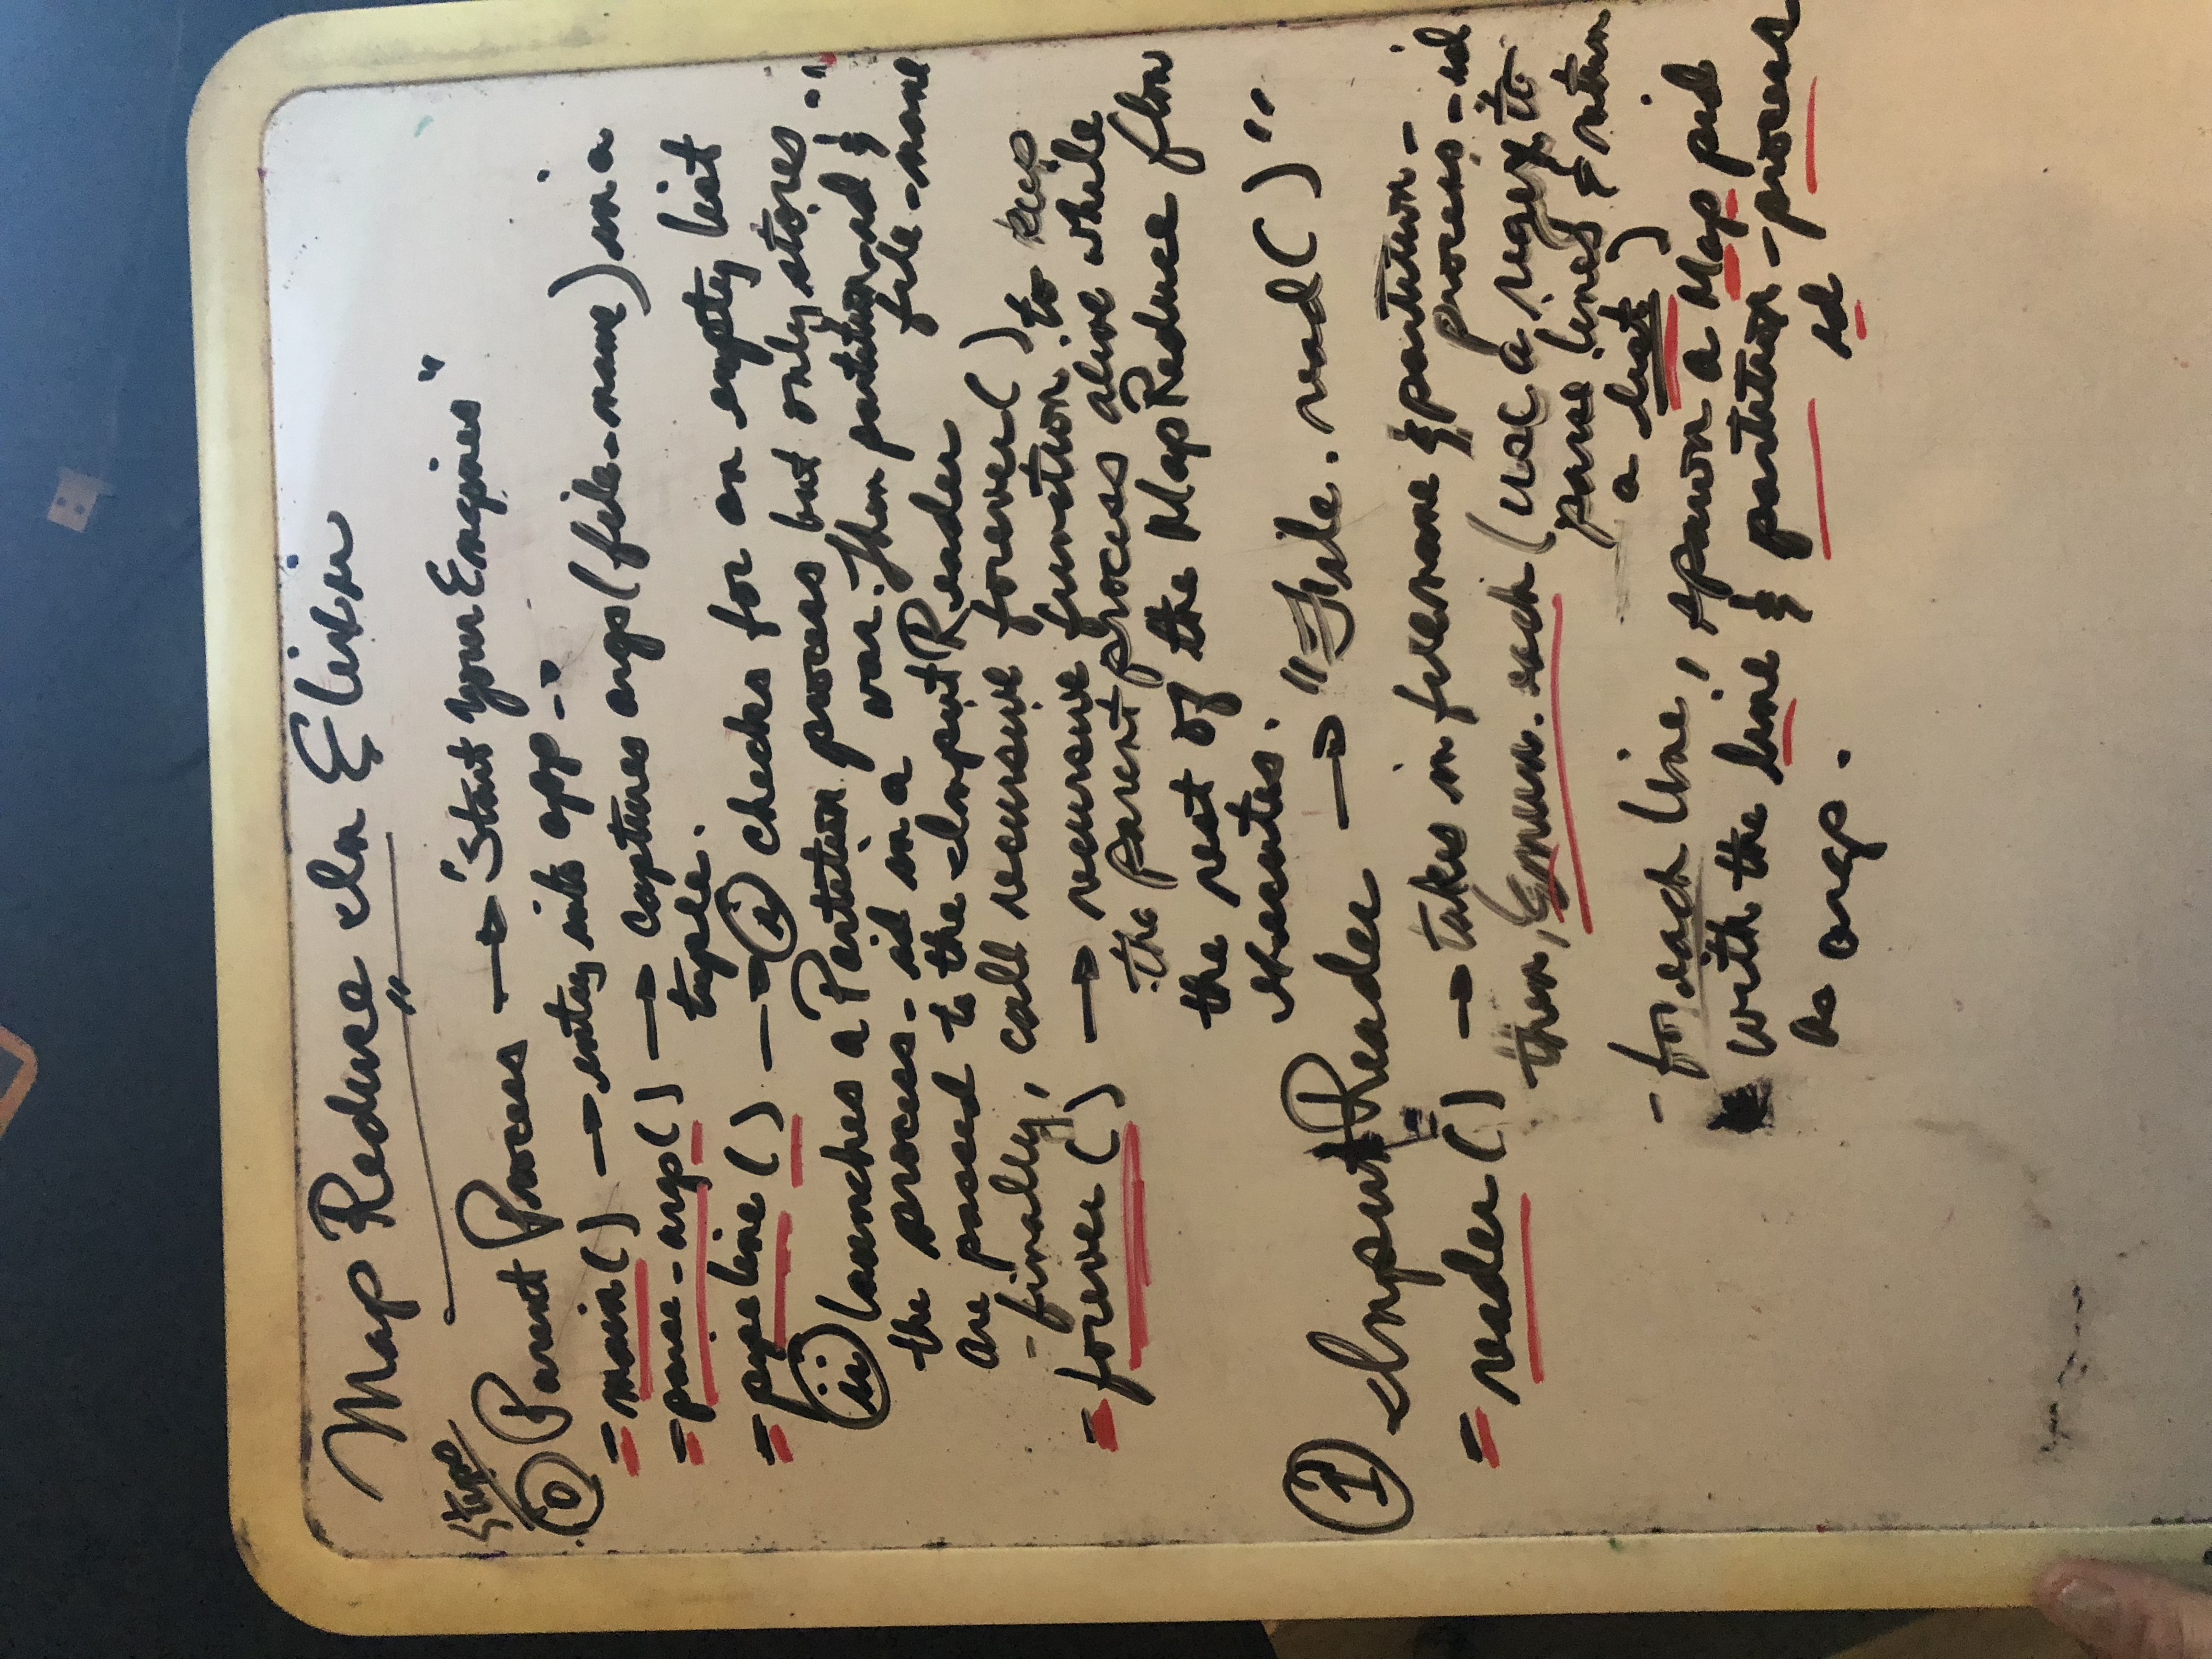 Map Reduce In Elixir
Steps
0 Parent Process → "Start Your Engines"
= main() → entry into app →
= parse-args() → captures args (file-name) in a
tuple.
= pipeline () → i checks for an empty list
ii launches a Partition process but only stores
the process-id in a var. Then partition-id &
file-name
are passed to the InputReader
- finally, call recursive forever()
= forever () → recursive function to keep
the parent process alive while
the rest of the MapReduce flow
executes.
1 InputReader → "File.read()"
= reader() → takes in filename & partition-
process-id
then, Enum.each (use a regex to
parse lines & return
a list)
- for each line, spawn a Map pid
with the line & partition-process
id
as args.